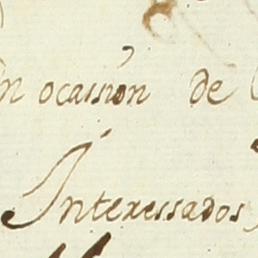 ocasión de
Interessados,